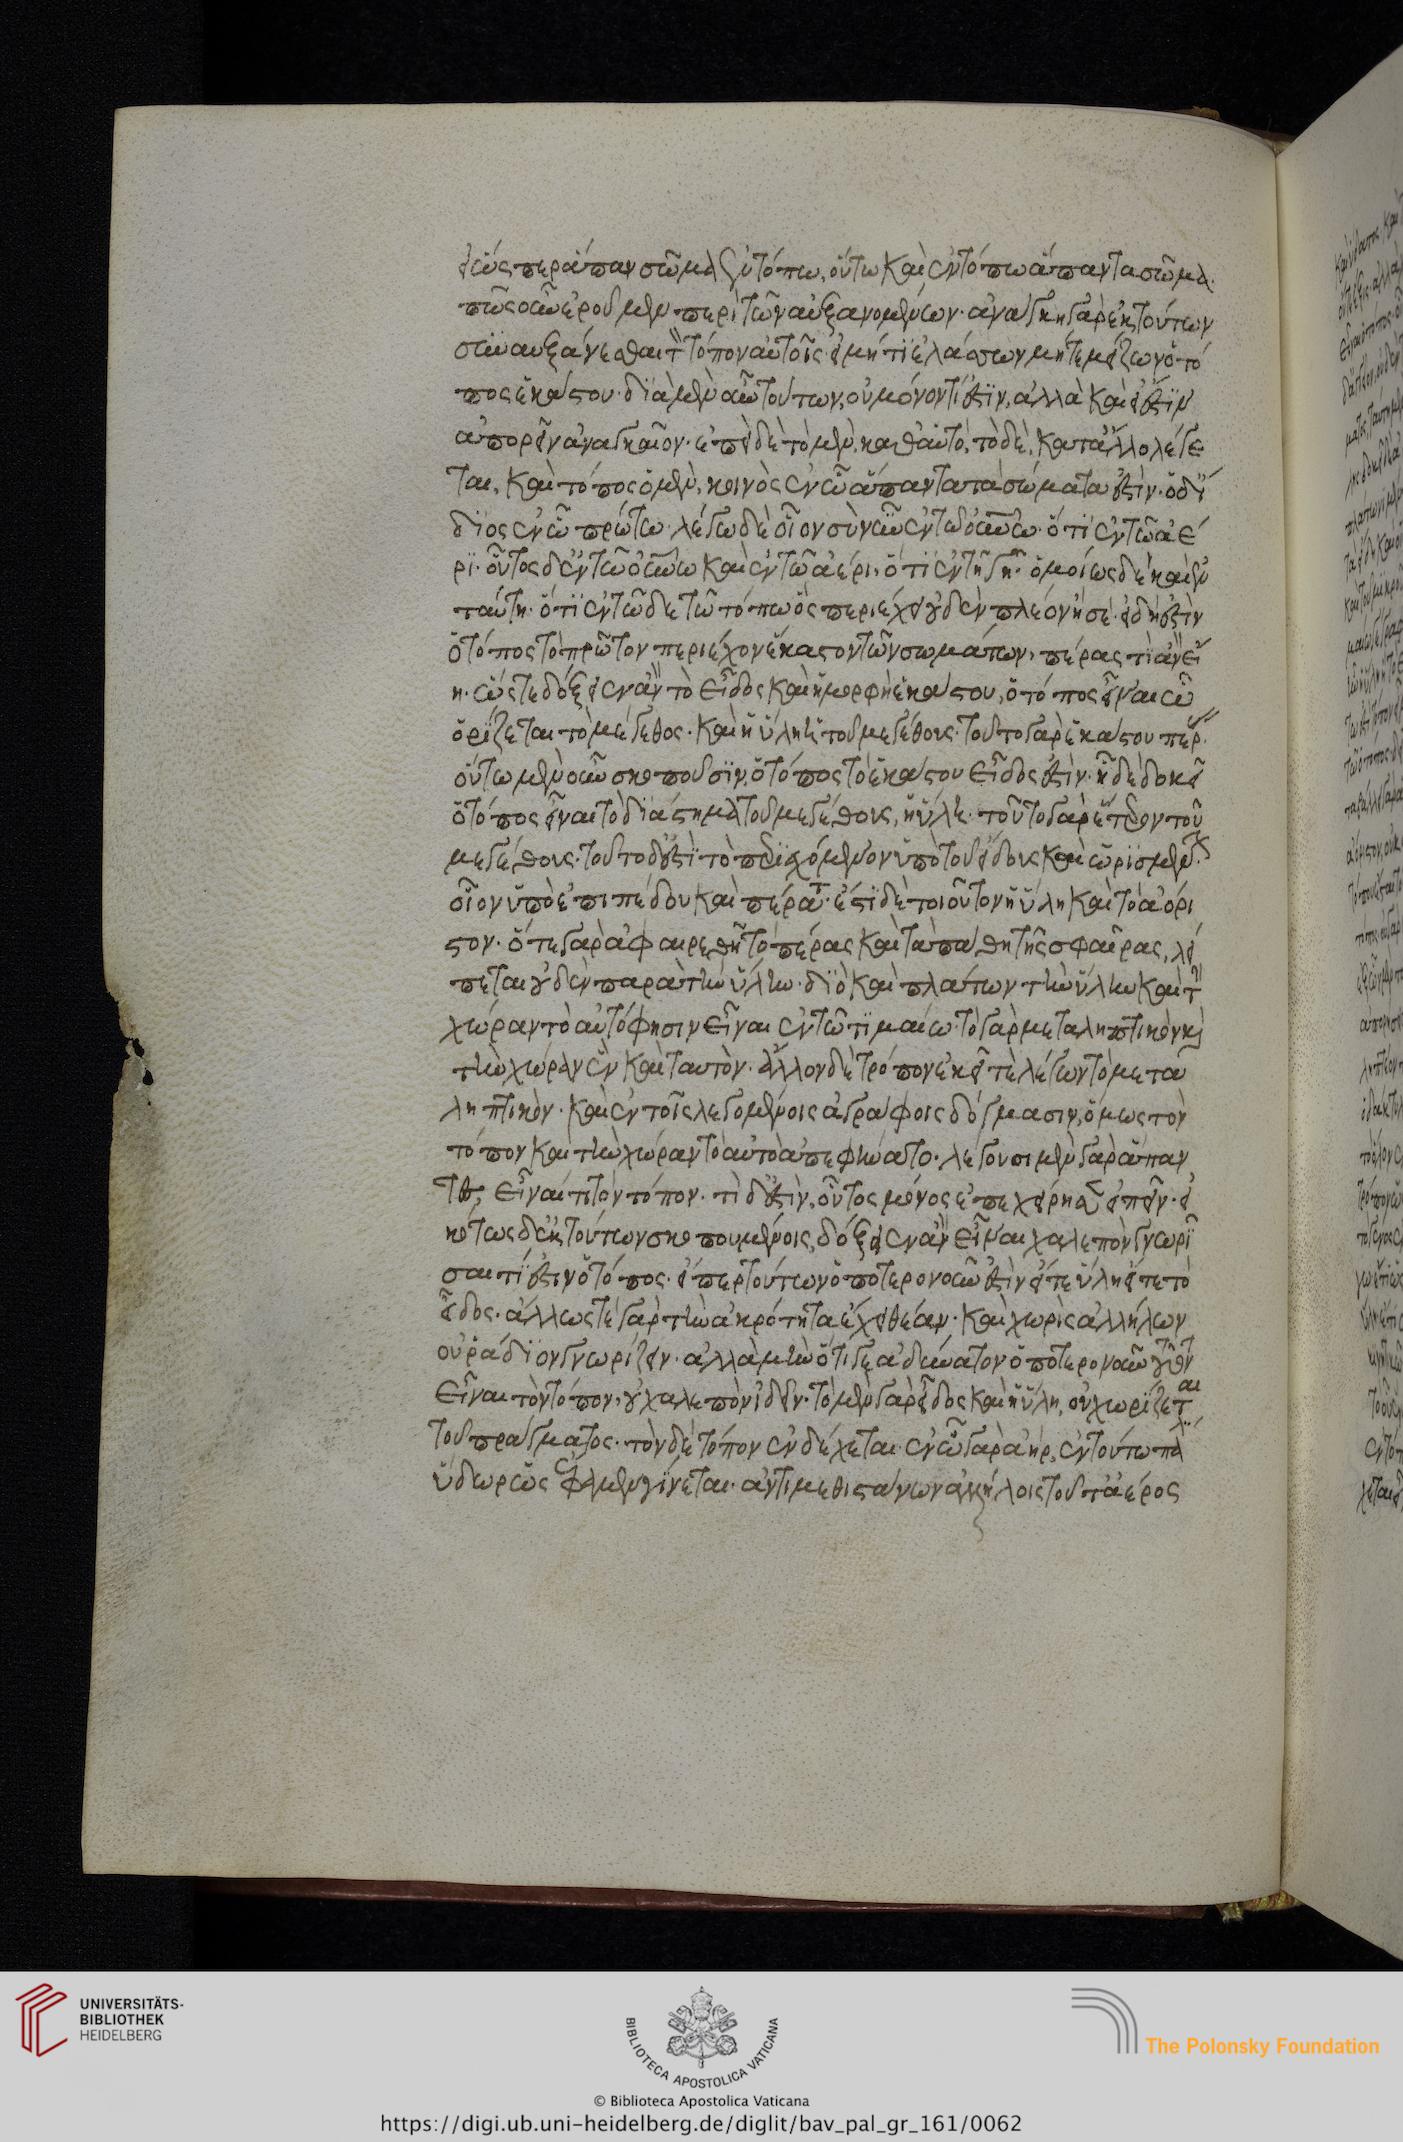 εἰ ὥσπερ ἅπαν σῶμα ἐν τόπω, οὕτω καὶ ἐν τόπω ἅπαντα σῶμα·
πῶς οὖν ἐροῦμεν περὶ τῶν αὐξανομένων· ἀνάγκη γὰρ ἐκ τούτων
συναυξάνεσθαι τὸν τόπον αὐτοῖς· εἰ μήτε ἐλάσσων μήτε μείζων ὁ τό
πος ἑκάστου· διὰ μὲν οὖν τούτων, οὐ μόνον τί ἐστιν, ἀλλὰ καὶ εἰ ἔστιν
ἀπορεῖν ἀναγκαῖον· ἐπεὶ δὲ τὸ μὲν, καθ' αὑτό, τὸ δὲ, κατ' ἄλλο λέγε
ται, καὶ τόπος ὁ μὲν, κοινὸς ἐν ᾧ ἅπαντα τὰ σώματα ἐστίν· ὁ δ' ἴ
διος ἐν ᾧ πρώτω· λέγω δὲ οἷον σὺ νῦν ἐν τῶ οὐρανῶ· ὅτι ἐν τῶ ἀέ
ρι· οὗτος δ' ἐν τῶ οὐρανῶ καὶ ἐν τῶ ἀέρι· ὅτι ἐν τῆ γῆ· ὁμοίως δὲ καὶ ἐν
ταύτη· ὅτι ἐν τῶδε τῶ τόπω ὃς περιέχει οὐδὲν πλέον ἢ σέ· εἰ δή ἐστιν
ὁ τόπος τὸ πρῶτον περιέχον ἕκαστον τῶν σωμάτων, πέρας τὶ ἂν εἴ
η· ὥστε δόξειεν ἂν τὸ εἶδος καὶ ἡ μορφὴ ἑκάστου, ὁ τόπος εἶναι ᾧ
ὁρίζεται τὸ μέγεθος· καὶ ἡ ὕλη ἡ τοῦ μεγέθους· τοῦτο γὰρ ἑκάστου πέρας·
οὕτω μὲν οὖν σκοποῦσιν, ὁ τόπος τὸ ἑκάστου εἶδος ἐστίν· ᾗ δὲ δοκεῖ
ὁ τόπος εἶναι τὸ διάστημα τοῦ μεγέθους, ἡ ὕλη· τοῦτο γὰρ ἕτερον τοῦ
μεγέθους· τοῦτο δ' ἐστὶ τὸ περιεχόμενον ὑπὸ τοῦ εἴδους καὶ ὡρισμένον·
οἷον ὑπὸ ἐπιπέδου καὶ πέρατος· ἔστι δὲ τοιοῦτον ἡ ὕλη καὶ τὸ ἀόρι
στον· ὅτε γὰρ ἀφαιρεθῆ τὸ πέρας καὶ τὰ πάθη τῆς σφαίρας, λεί
πεται οὐδὲν παρὰ τὴν ὕλην· διὸ καὶ πλάτων τὴν ὕλην καὶ τὴν
χώραν τὸ αὐτό φησιν εἶναι ἐν τῶ τιμαίω· τὸ γὰρ μεταληπτικὸν καὶ
τὴν χώραν ἓν καὶ ταυτὸν· ἄλλον δὲ τρόπον ἐκεῖ τὲ λέγων τὸ μετα
ληπτικὸν· καὶ ἐν τοῖς λεγομένοις ἀγράφοις δόγμασιν, ὅμως τὸν
τόπον καὶ τὴν χώραν τὸ αὐτὸ ἀπεφήνατο· λέγουσι μὲν γὰρ ἅπαν
τες εἶναί τι τὸν τόπον· τὶ δ' ἐστὶν, οὗτος μόνος ἐπεχείρησεν εἰπεῖν· εἰ
κότως δ' ἐκ τούτων σκοπουμένοις, δόξειεν ἂν εἶναι χαλεπὸν γνωρί
σαι τί ἐστιν ὁ τόπος· εἴπερ τούτων ὁποτερονοῦν ἐστὶν εἴτε ὕλη εἴτε τὸ
εἶδος· ἄλλως τὲ γὰρ τὴν ἀκρότητα ἔχει θέαν· καὶ χωρὶς ἀλλήλων
οὐ ῥάδιον γνωρίζειν· ἀλλὰ μὴν ὅτι γε ἀδύνατον ὁποτερονοῦν τούτων
εἶναι τὸν τόπον, οὐ χαλεπὸν ἰδεῖν· τὸ μὲν γὰρ εἶδος καὶ ἡ ὕλη, οὐ χωρίζεται
τοῦ πράγματος· τὸν δὲ τόπον ἐνδέχεται· ἐν ᾧ γὰρ ἀὴρ, ἐν τούτω πάλιν
ὕδωρ ὡς ἔφαμεν γίνεται· ἀντιμεθισταμένων ἀλλήλοις τοῦ τ' ἀέρος
UNIVERSITÄTS-
BIBLIOTHEK
HEIDELBERG
BIBLIOTECA APOSTOLICA VATICANA
The Polonsky Foundation
© Biblioteca Apostolica Vaticana
https://digi.ub.uni-heidelberg.de/diglit/bav_pal_gr_161/0062